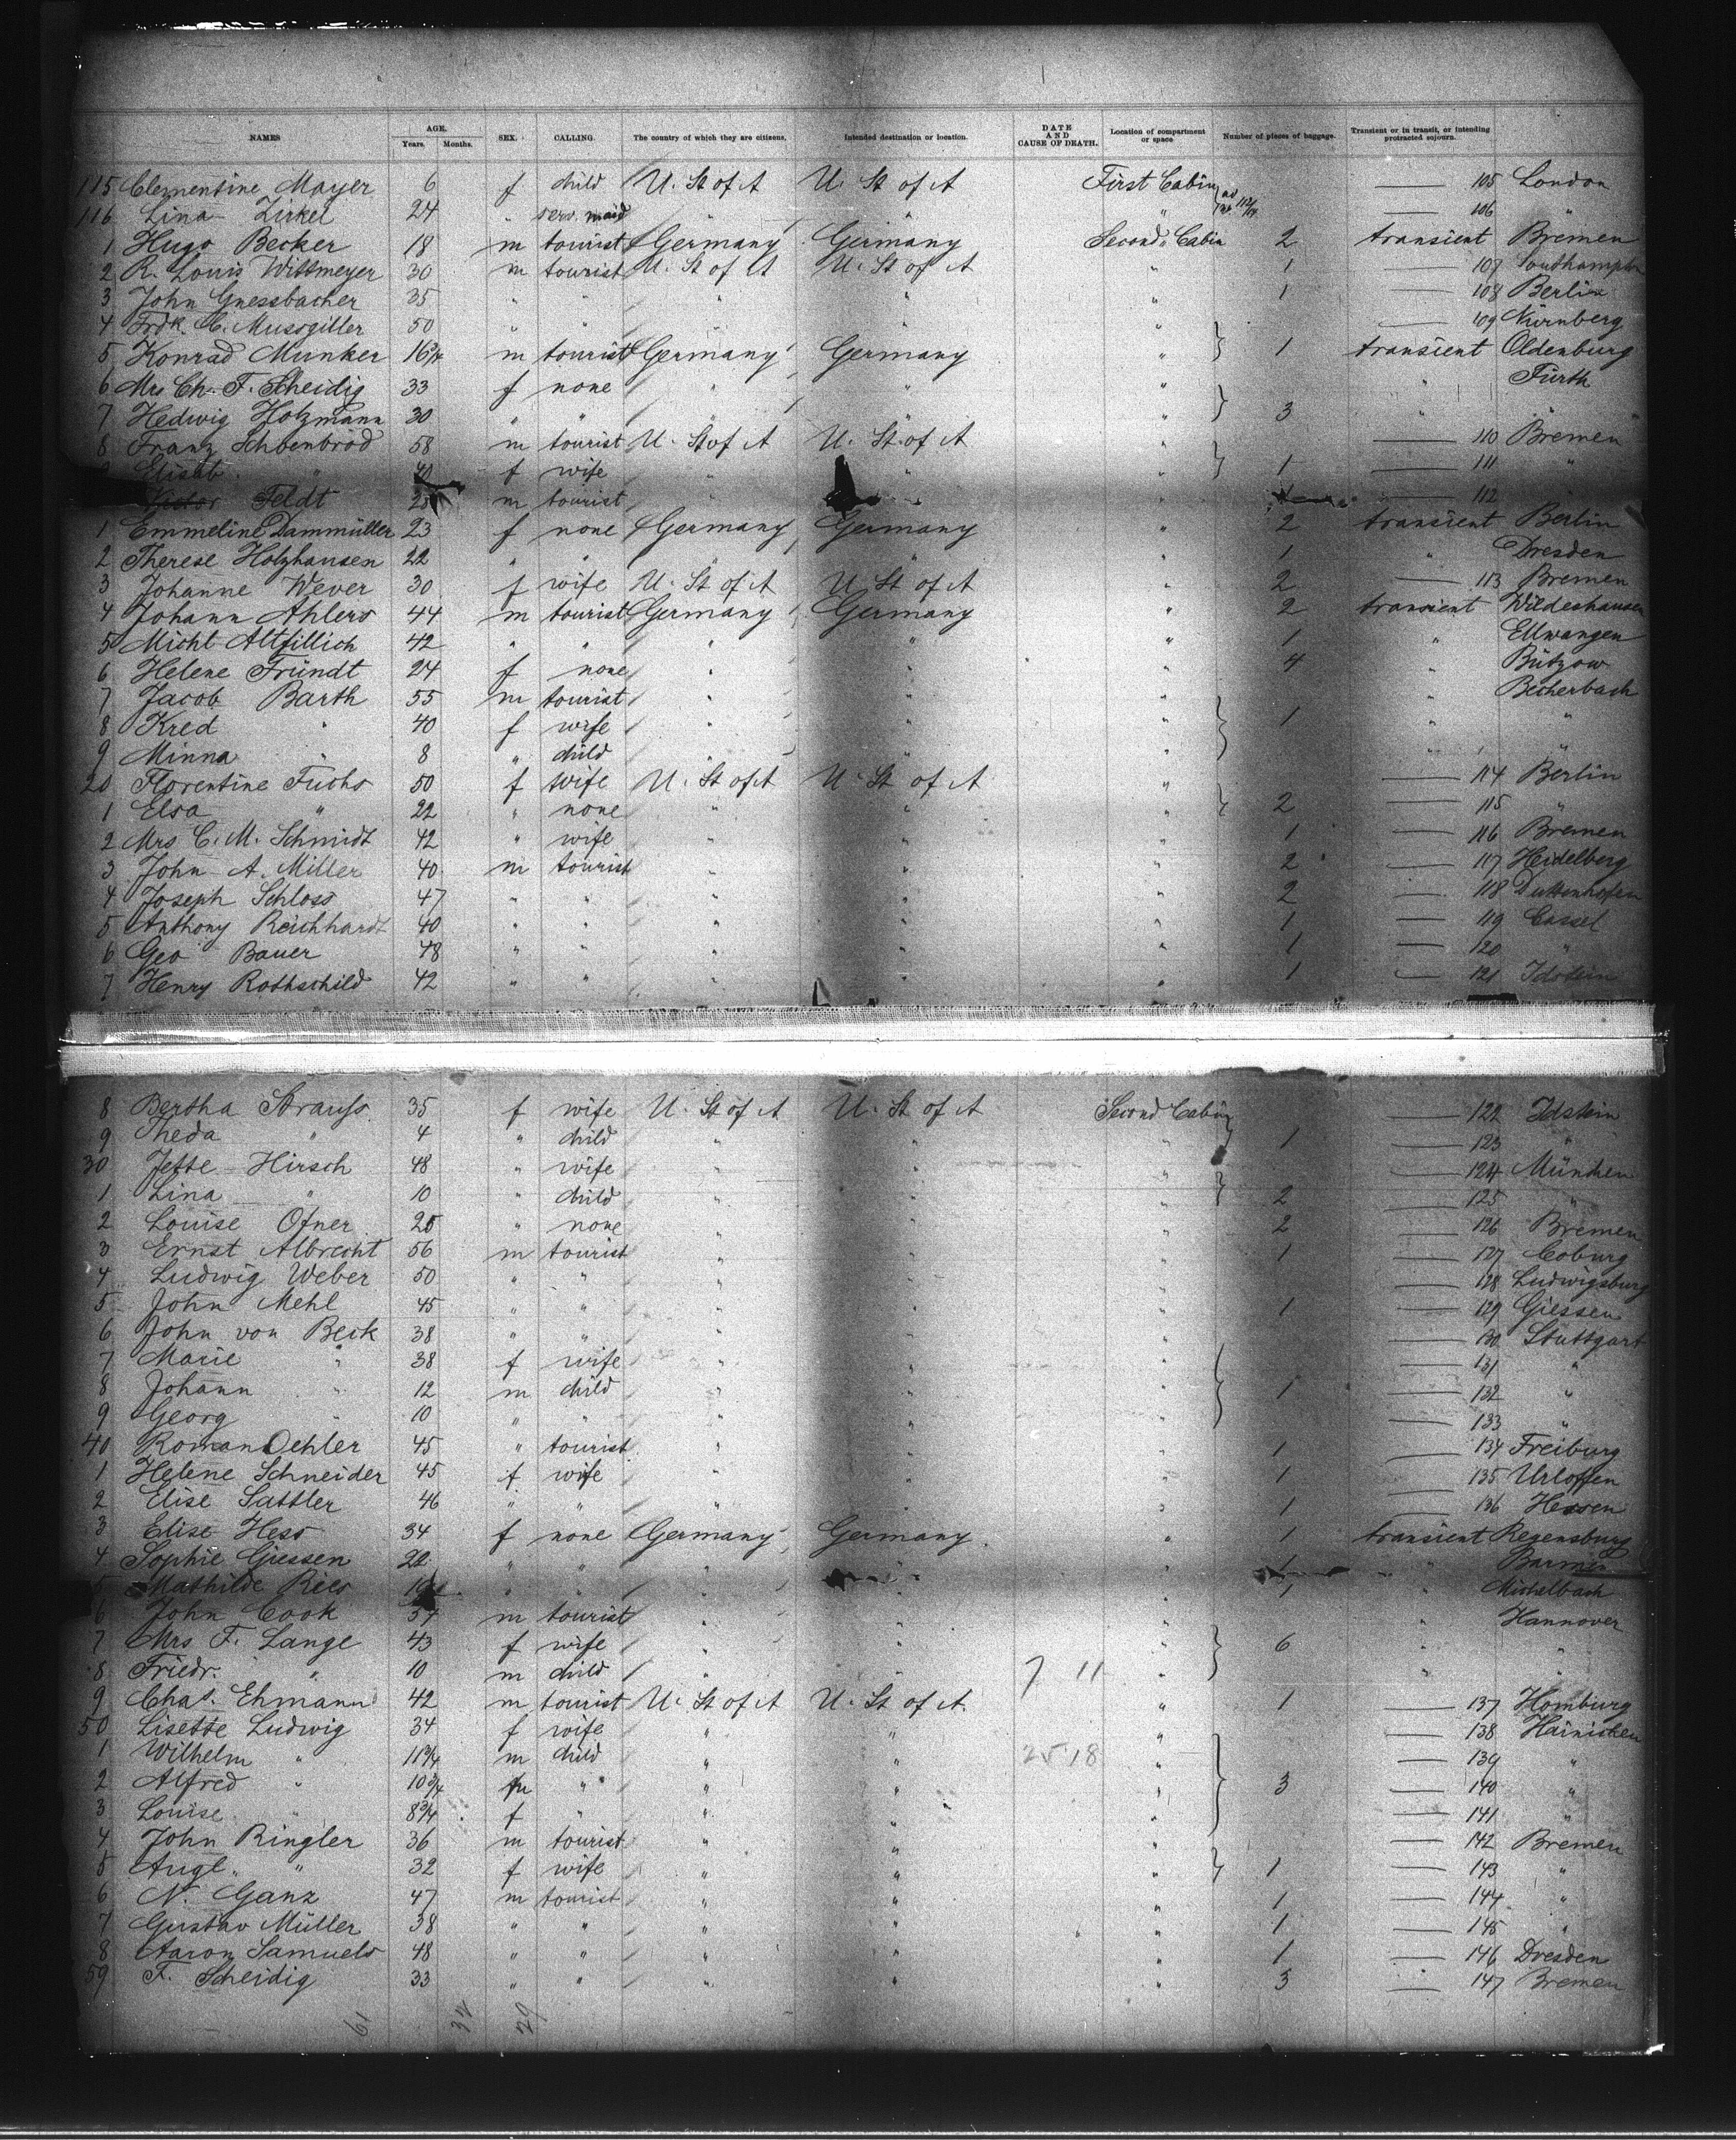 NAMES AGE. Years. Months. SEX. CALLING. The country of which they are citizens. Intended destination or location. DATE AND CAUSE OF DEATH. Location of compartment or space Number of pieces of baggage. Transient or in transit, or intending protracted sojourn.
115 Clementine Mayer 6 f child U. St of A U. St of A First Cabin — 105 London
116 Lina Zirkel 24 " serv. maid " " " — 106 "
1 Hugo Becker 18 m tourist Germany Germany Second Cabin 2 transient Bremen
2 R. Louis Wittmeyer 30 m tourist U. St of A U. St of A " 1 — 107 Southampton
3 John Gnessbacher 35 " " " " " 1 — 108 Berlin
4 Frdk. C. Mussgiller 50 " " " " " — 109 Nürnberg
5 Konrad Munker 16 3/4 m tourist Germany Germany " 1 transient Oldenburg
6 Mrs Ch. F. Scheidig 33 f none " " " " Fürth
7 Hedwig Holzmann 30 " " " " " 3 " "
8 Franz Schoenbrod 58 m tourist U. St of A U. St. of A " — 110 Bremen
Elisab. " 40 f wife " " " 1 — 111 "
Victor Feldt m tourist " " " — 112
1 Emmeline Dammüller 23 f none Germany Germany " 2 transient Berlin
2 Therese Holzhausen 22 " " " " " 1 " Dresden
3 Johanne Wever 30 f wife U. St of A U. St of A " 2 — 113 Bremen
4 Johann Ahlers 44 m tourist Germany Germany " 2 transient Wildeshausen
5 Michl Altfillich 42 " " " " " 1 " Ellwangen
6 Helene Fründt 24 f none " " " 4 " Bützow
7 Jacob Barth 55 m tourist " " " " Becherbach
8 Kred " 40 f wife " " " 1 " "
9 Minna " 8 " child " " " " "
20 Florentine Fuchs 50 f wife U. St of A U. St of A " — 114 Berlin
1 Elsa " 22 " none " " " 2 — 115 "
2 Mrs C. M. Schmidt 42 " wife " " " 1 — 116 Bremen
3 John A. Miller 40 m tourist " " " 2 — 117 Heidelberg
4 Joseph Schloss 47 " " " " " 2 — 118 Duttenhofen
5 Anthony Reichhardt 40 " " " " " 1 — 119 Cassel
6 Geo Bauer 48 " " " " " 1 — 120 "
7 Henry Rothschild 42 " " " " " 1 — 121 Idstein
8 Bertha Strauss 35 f wife U. St of A U. St of A Second Cabin — 122 Idstein
9 Theda " 4 " child " " " 1 — 123 "
30 Jette Hirsch 48 " wife " " " — 124 München
1 Lina " 10 " child " " " 2 — 125 "
2 Louise Ofner 25 " none " " " 2 — 126 Bremen
3 Ernst Albrecht 56 m tourist " " " 1 — 127 Coburg
4 Ludwig Weber 50 " " " " " — 128 Ludwigsburg
5 John Mehl 45 " " " " " 1 — 129 Giessen
6 John von Beck 38 " " " " " — 130 Stuttgart
7 Marie " 38 f wife " " " — 131 "
8 Johann " 12 m child " " " 1 — 132 "
9 Georg " 10 " " " " " — 133 "
40 Roman Oehler 45 " tourist " " " 1 — 134 Freiburg
1 Helene Schneider 45 f wife " " " 1 — 135 Urloffen
2 Elise Sattler 46 " " " " " 1 — 136 Hessen
3 Elise Hess 34 f none Germany Germany " 1 transient Regensburg
4 Sophie Giessen 22 " " " " " 1 " Barmen
5 Mathilde Ries " " " " " 1 " Michelbach
6 John Cook 54 m tourist " " " " Hannover
7 Mrs F. Lange 43 f wife " " " 6 " "
8 Friedr. " 10 m child " " 7 11 " " "
9 Chas. Ehmann 42 m tourist U. St of A U. St of A. " 1 — 137 Homburg
50 Lisette Ludwig 34 f wife " " " — 138 Hainichen
1 Wilhelm " 11 3/4 m child " " 25 18 " — 139 "
2 Alfred " 10 3/4 m " " " " 3 — 140 "
3 Louise " 8 3/4 f " " " " — 141 "
4 John Ringler 36 m tourist " " " — 142 Bremen
5 Augt. " 32 f wife " " " 1 — 143 "
6 N. Ganz 47 m tourist " " " 1 — 144 "
7 Gustav Müller 38 " " " " " 1 — 145 "
8 Aaron Samuels 48 " " " " " 1 — 146 Dresden
59 F. Scheidig 33 " " " " " 3 — 147 Bremen
61 32 29